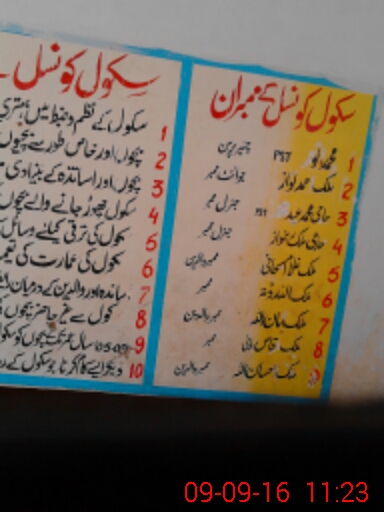 سکول کونسل کے ممبران
1 محمد انور PST چیئرپرسن
2 ملک محمد نواز جوائنٹ ممبر
3 حاجی محمد PST جنرل ممبر
4 حاجی ملک نواز جنرل ممبر
5 ملک غلام ممبر والدین
6 ملک اللہ دتہ ممبر
7 ملک امان اللہ ممبر والدین
8 ملک ممبر
9 ملک احسان اللہ ممبر والدین
سکول کونسل
1 سکول کے نظم و ضبط میں بہتری
2 بچوں اور خاص طور سے بچیوں
3 بچوں اور اساتذہ کے بنیادی
4 سکول چھوڑ جانے والے بچوں
5 سکول کی ترقی کیلئے وسائل
6 سکول کی عمارت کی
7 اساتذہ اور والدین کے درمیان
8 سکول سے غیر حاضر بچوں
9 05-09 سال عمر تک بچوں کو سکول
10 دیگر ایسے کام کرنا جو سکول کے
09-09-16 11:23